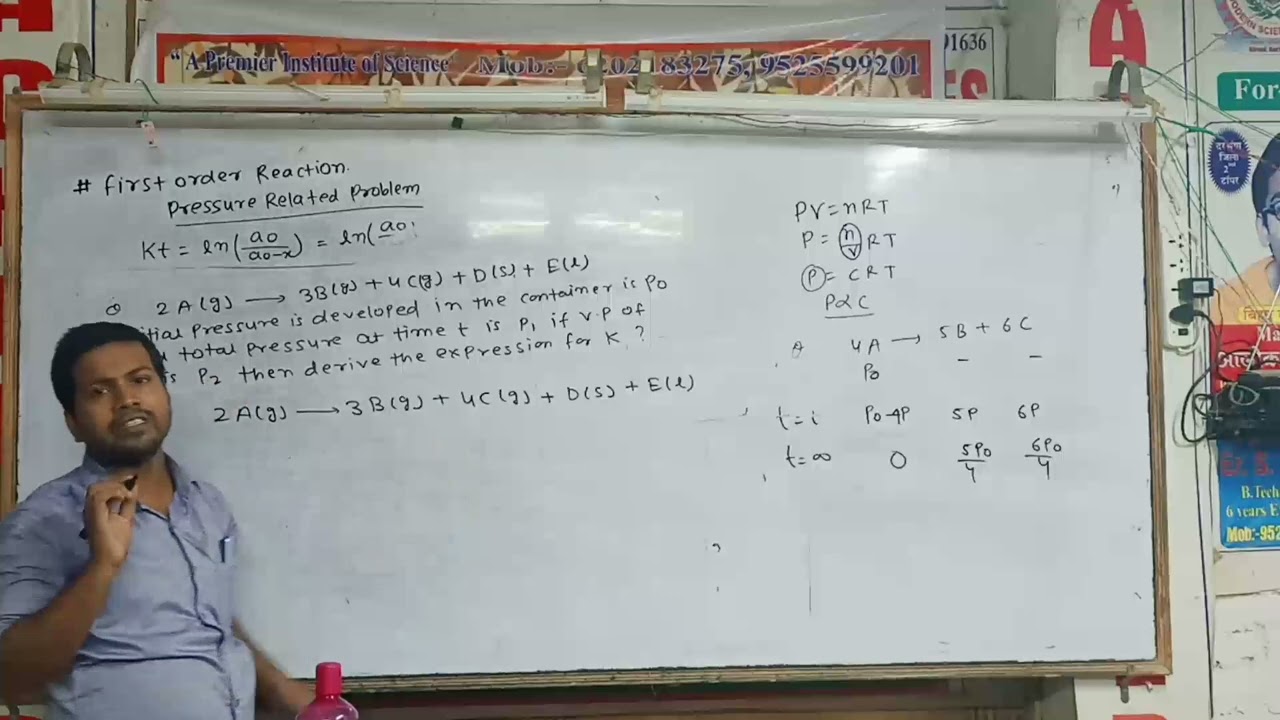 "A Premier Institute of Science" Mob:- 83275, 9525599201
91636
For-
दरभंगा
जिला
2nd
टॉपर
B.Tech
6 years E
Mob:-952
# First order Reaction.
Pressure Related Problem
Kt = ln(a0/a0-x) = ln(a0
2A(g) ⟶ 3B(g) + 4C(g) + D(s) + E(l)
tial Pressure is developed in the container is P0
total pressure at time t is P1 if v.p of
is P2 then derive the expression for K ?
2A(g) ⟶ 3B(g) + 4C(g) + D(s) + E(l)
PV = nRT
P = n/V RT
P = CRT
P∝C
4A ⟶ 5B + 6C
P0 – –
t=t P0-4P 5P 6P
t=∞ 0 5P0/4 6P0/4